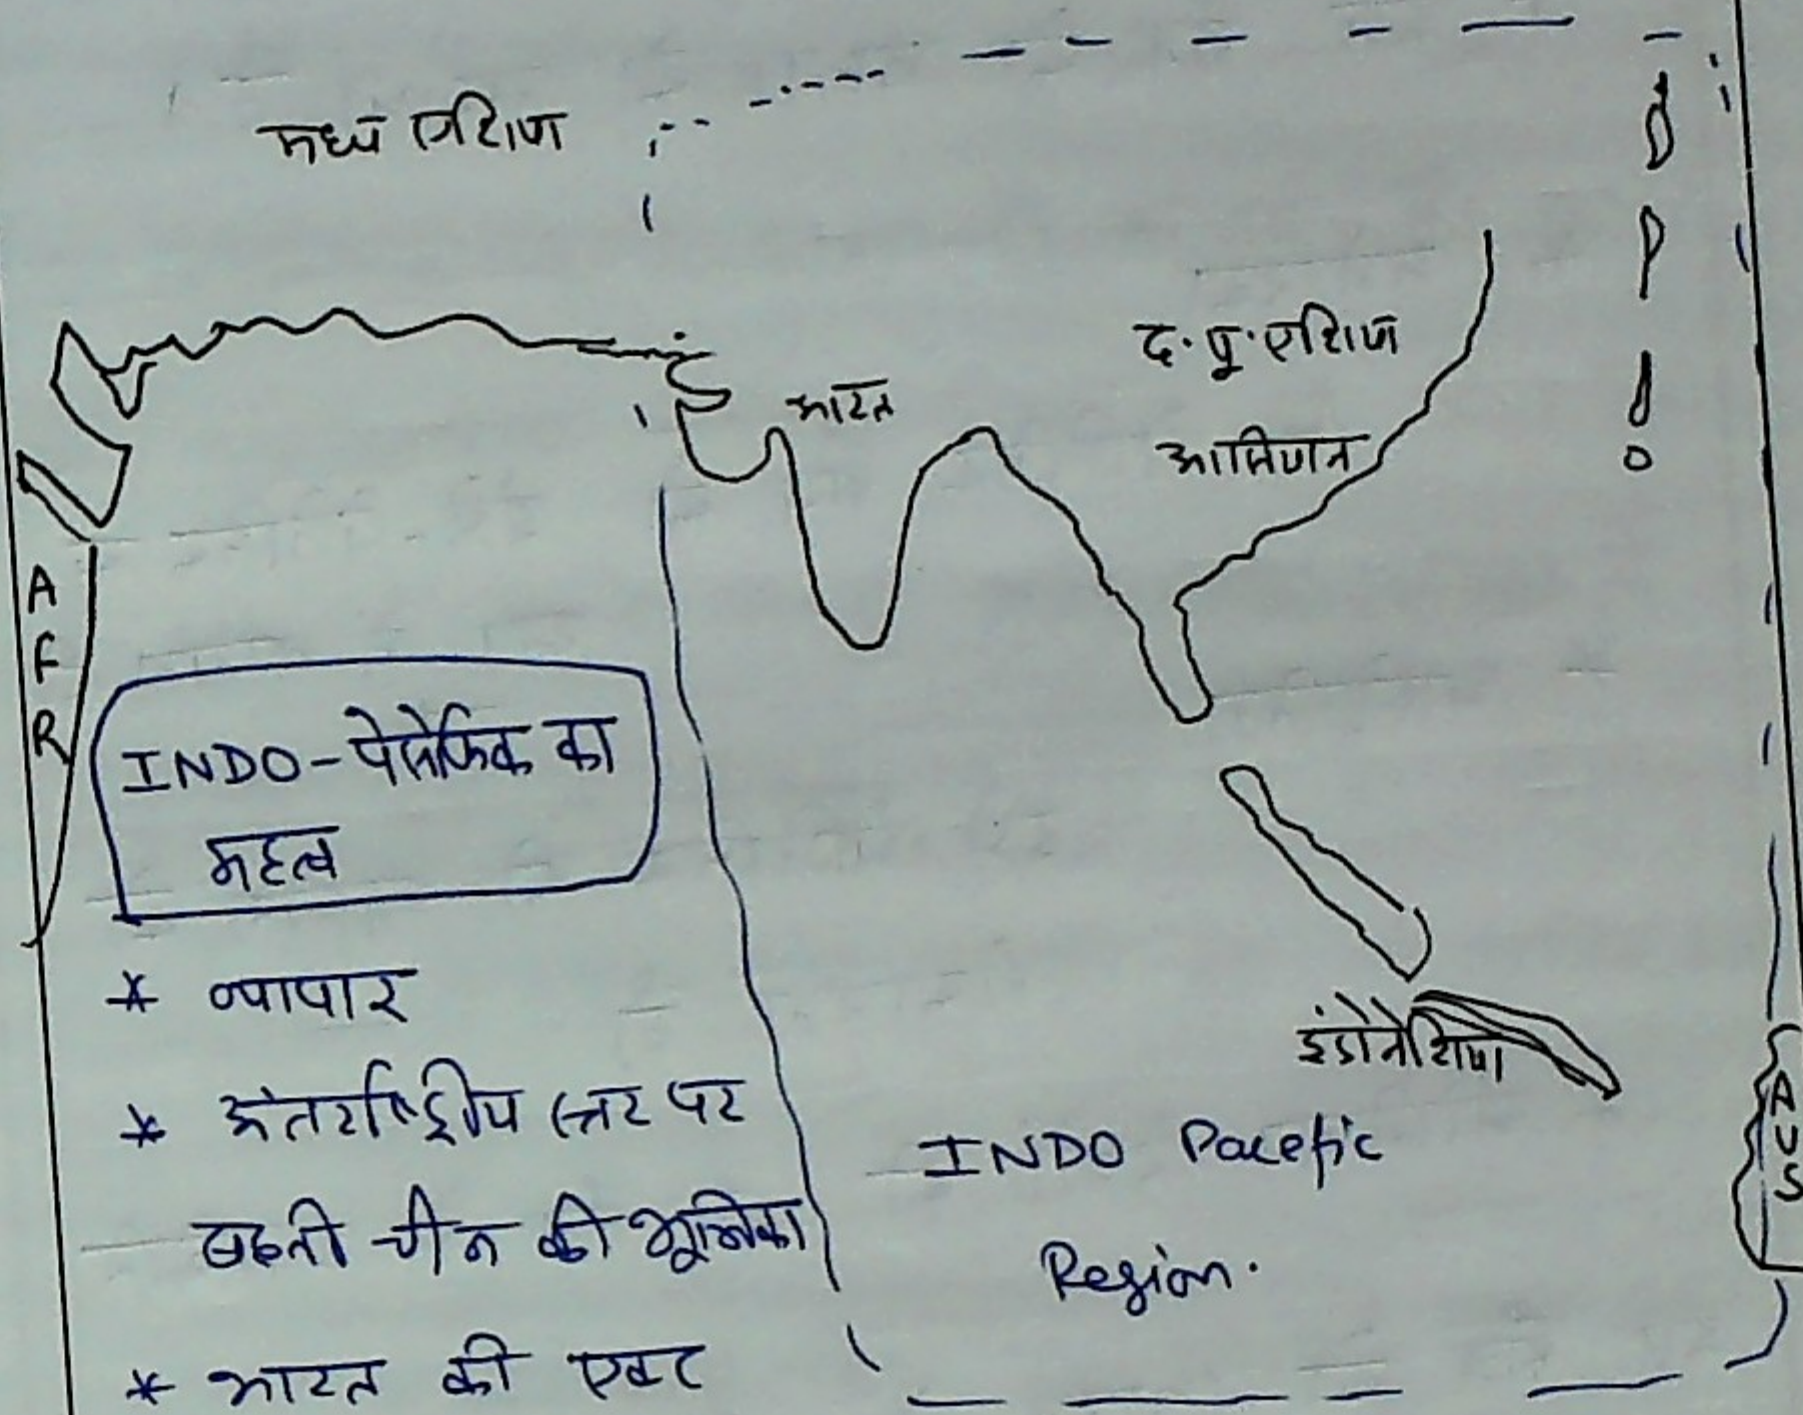 मध्य एशिया
द. पू. एशिया
भारत
आसियान
AFR
INDO-पेसेफिक का
महत्व
* व्यापार
* अंतर्राष्ट्रीय स्तर पर
बढती चीन की भूमिका
* भारत की एक्ट
इंडोनेशिया
INDO Pacefic
Region.
AUS